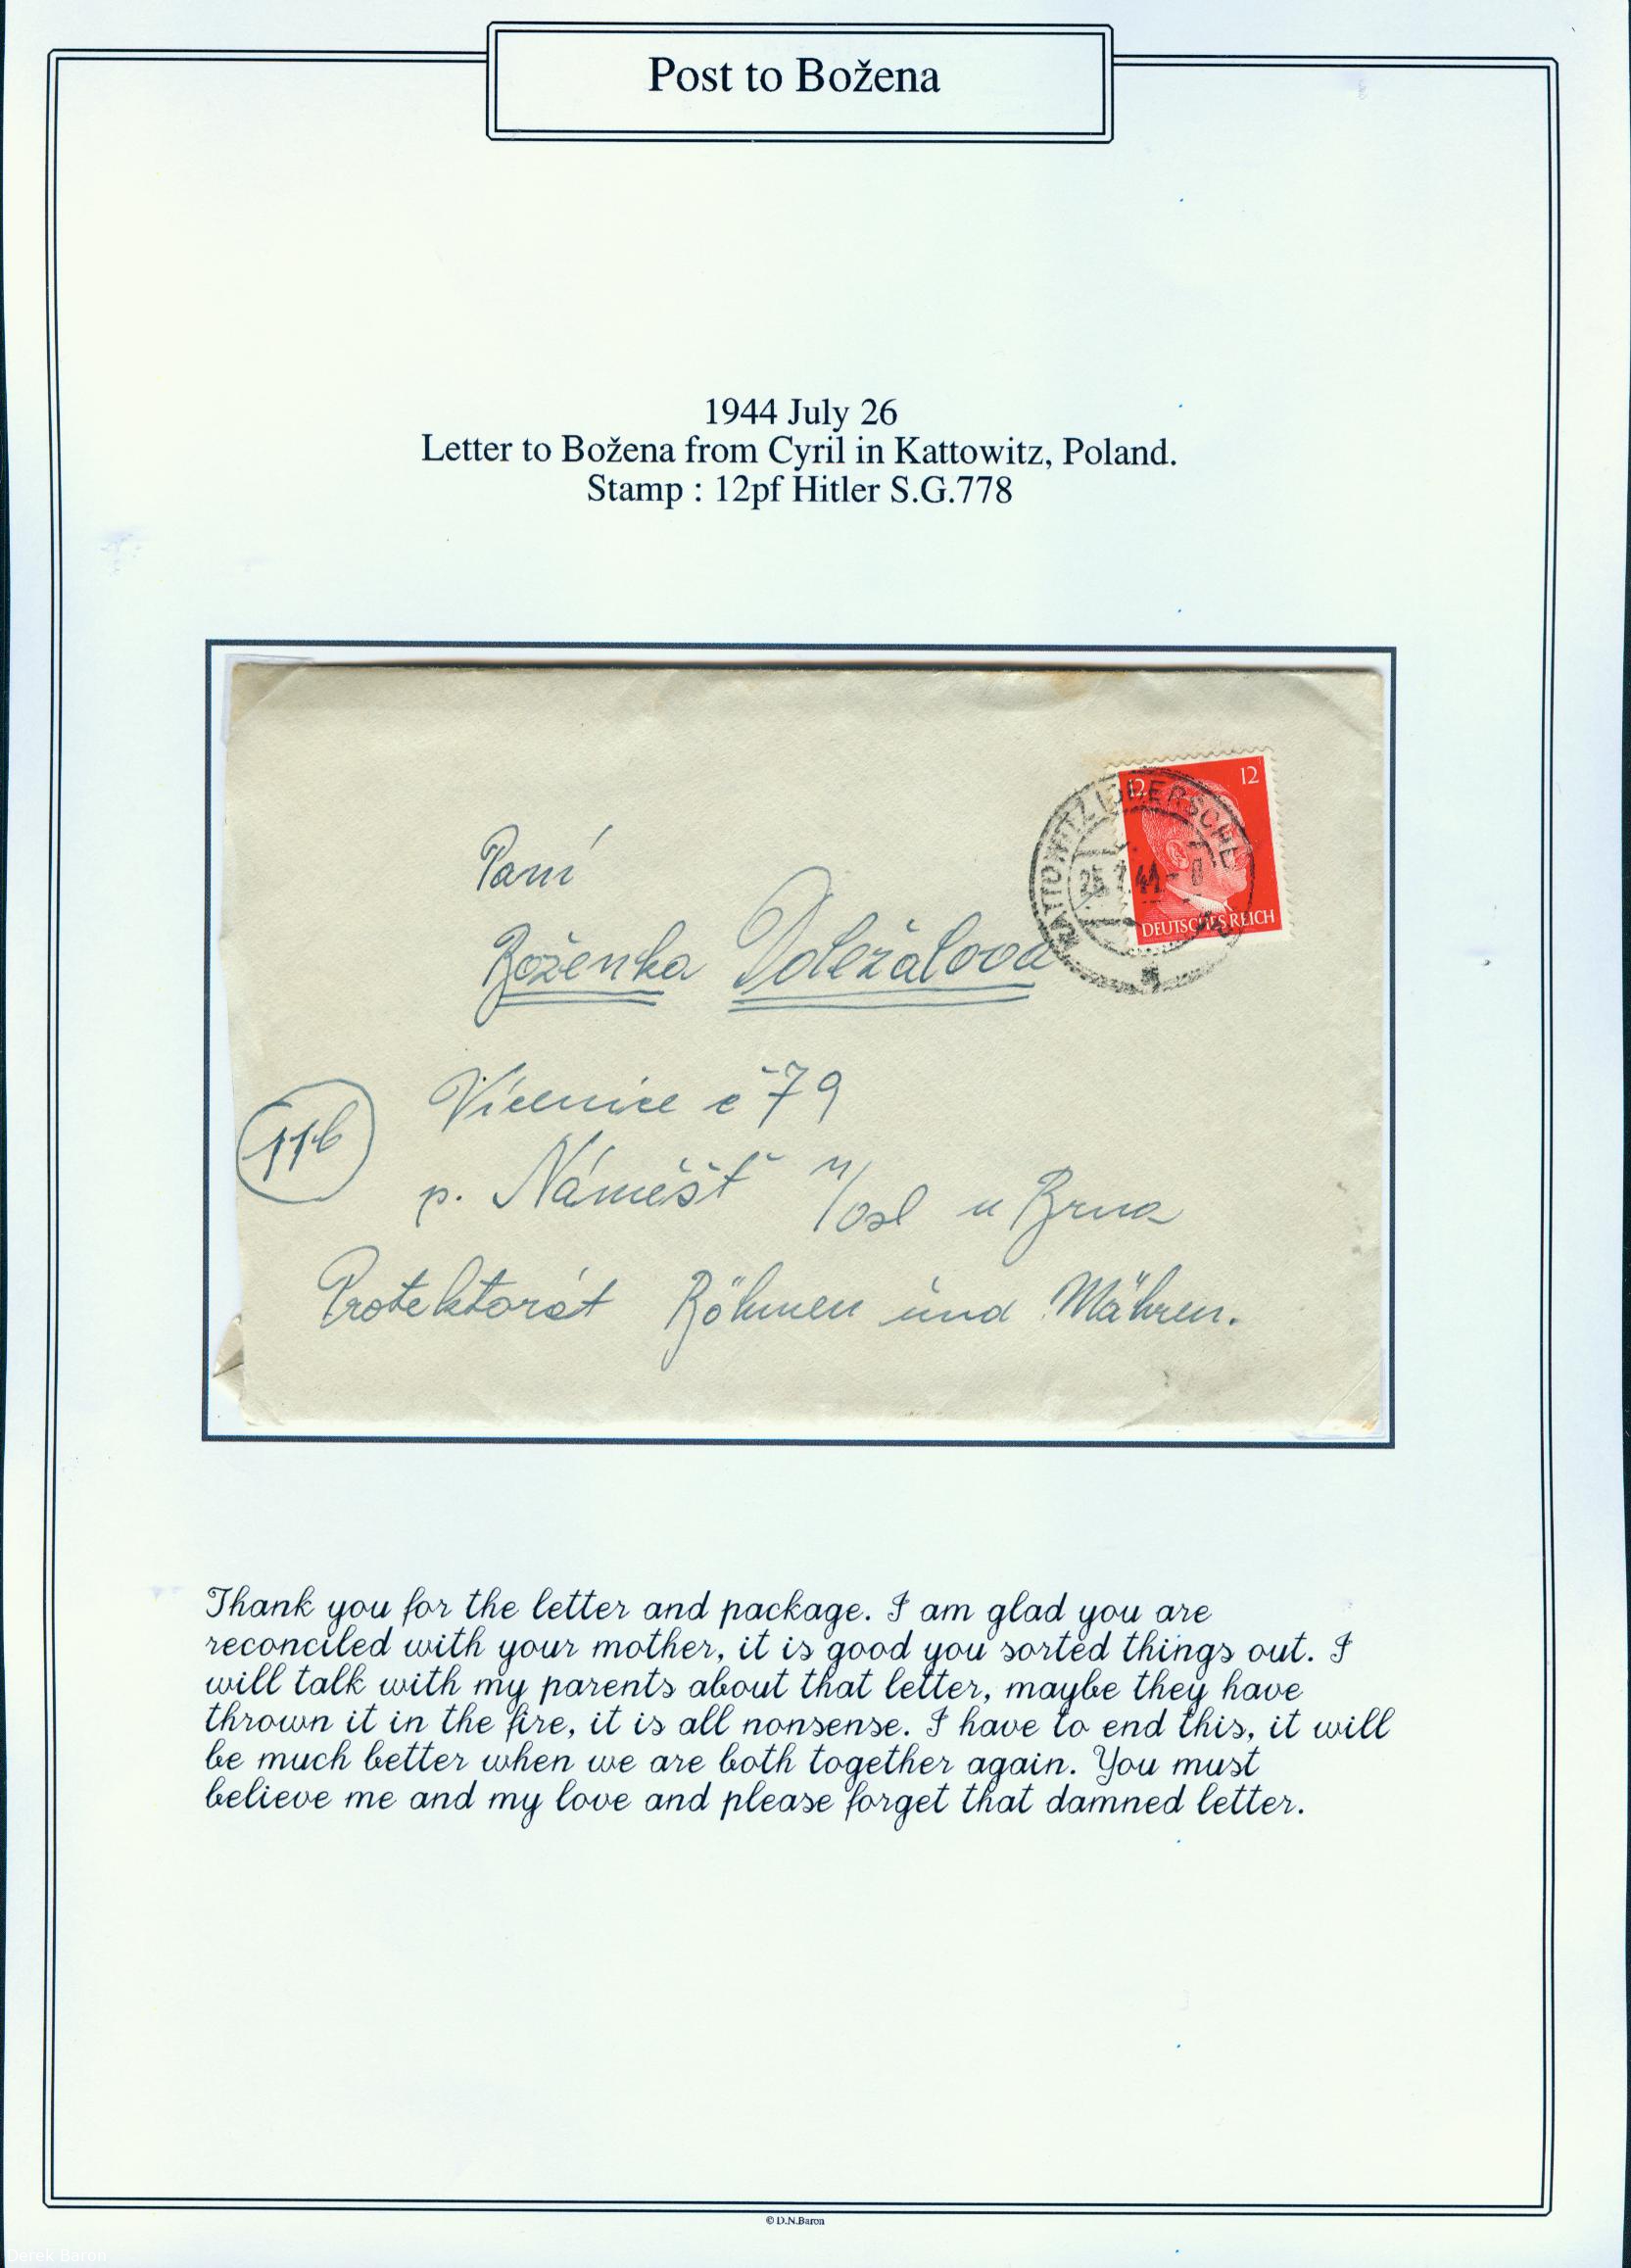 Post to Božena
1944 July 26
Letter to Božena from Cyril in Kattowitz, Poland.
Stamp : 12pf Hitler S.G.778
12 12
DEUTSCHES REICH
KATTOWITZ (OBERSCHL
Paní
Boženka Doležalová
Vícenice č 79
11b
p. Náměšť n/Osl u Brna
Protektorát Böhmen und Mähren.
Thank you for the letter and package. I am glad you are
reconciled with your mother, it is good you sorted things out. I
will talk with my parents about that letter, maybe they have
thrown it in the fire, it is all nonsense. I have to end this, it will
be much better when we are both together again. You must
believe me and my love and please forget that damned letter.
© D.N.Baron
Derek Baron